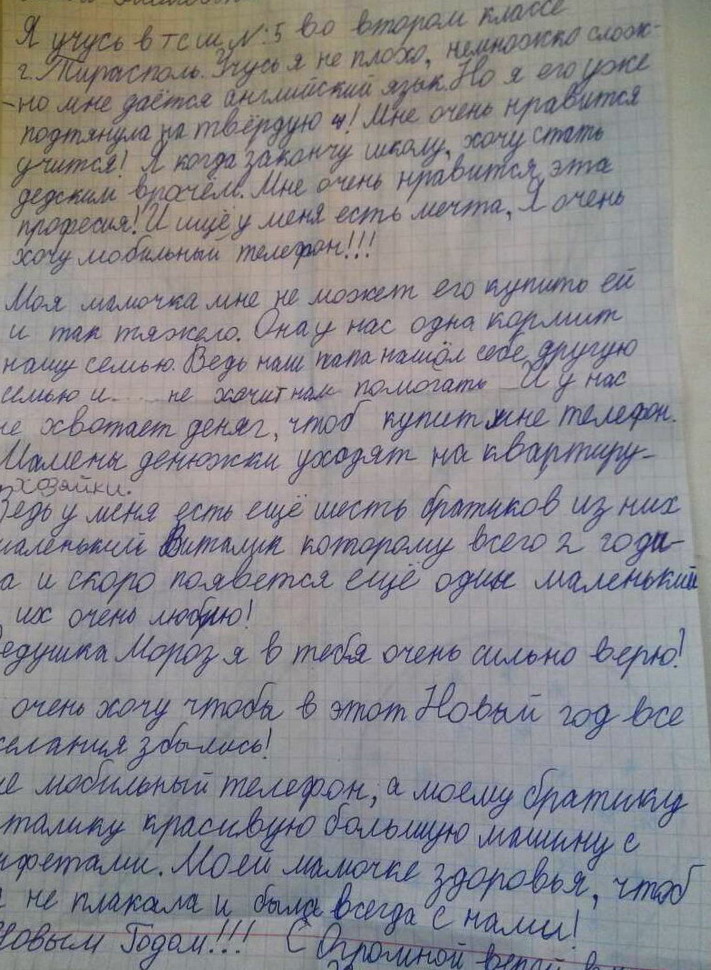 Я учусь в тсш №:5 во втором классе
г. Тирасполь. Учусь я не плохо, немножко слож-
-но мне даётся английский язык. Но я его уже
подтянула на твёрдую 4! Мне очень нравится
учится! Я когда закончу школу, хочу стать
дедским врачём. Мне очень нравится эта
професия! И ищё у меня есть мечта, Я очень
хочу мобильный телефон!!!
Моя мамочка мне не может его купить ей
и так тяжело. Она у нас одна кормит
нашу семью. Ведь наш папа нашёл себе другую
семью и .... не хачит нам помогать. И у нас
не хвотает деняг, чтоб купит мне телефон.
Мамены денюжки уходят на квартиру-
хозяйки.
Ведь у меня есть ещё шесть братиков из них
маленький Виталик которому всего 2 годи-
ка и скоро появется ещё один маленький
их очень люблю!
Дедушка Мороз я в тебя очень сильно верю!
очень хочу чтобы в этот Новый год все
желания збылись!
не мобильный телефон, а моему братику
талику красивую большую машину с
нфетами. Моей мамочке здоровья, чтоб
не плакала и была всегда с нами!
Новым Годом!!! С Огромной верой в